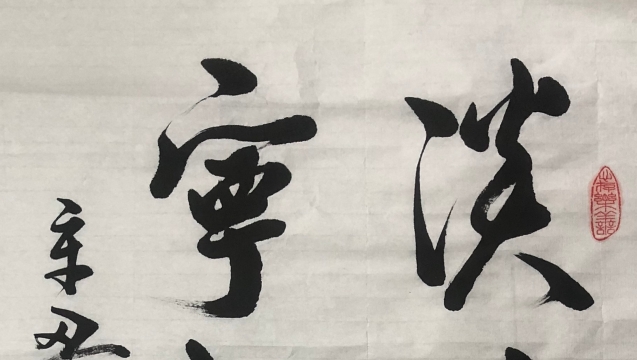 淡
寧
辛丑